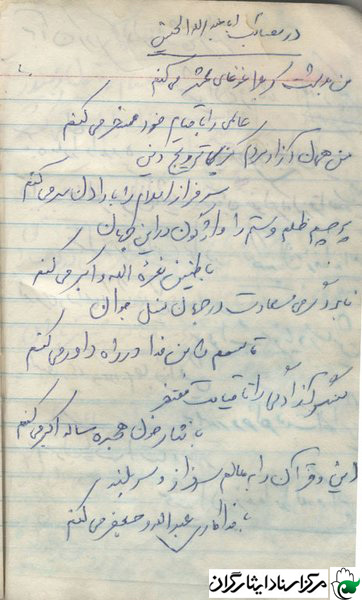 در مصائب ابا عبدالله الحسین
من به دشت کربلا غوغای محشر می‌کنم
عالمی را با قیام خود مسخر می‌کنم
من همان آزاد مردم کز پی ترویج دین
سرفراز اسلام را با دل می‌کنم
پرچم ظلم و ستم را واژگون در این جهان
با طنین نعره الله و اکبر می‌کنم
تا سعادت در جهان نسل جوان
قاسمم را من فدا در راه داور می‌کنم
کشور آزادگی را تا قیامت مفتخر
با نثار خون هجده ساله اکبر می‌کنم
دین و قرآن را به عالم سرفراز و سربلند
با فداکاری عبدالله و جعفر می‌کنم
مرکز اسناد ایثارگران